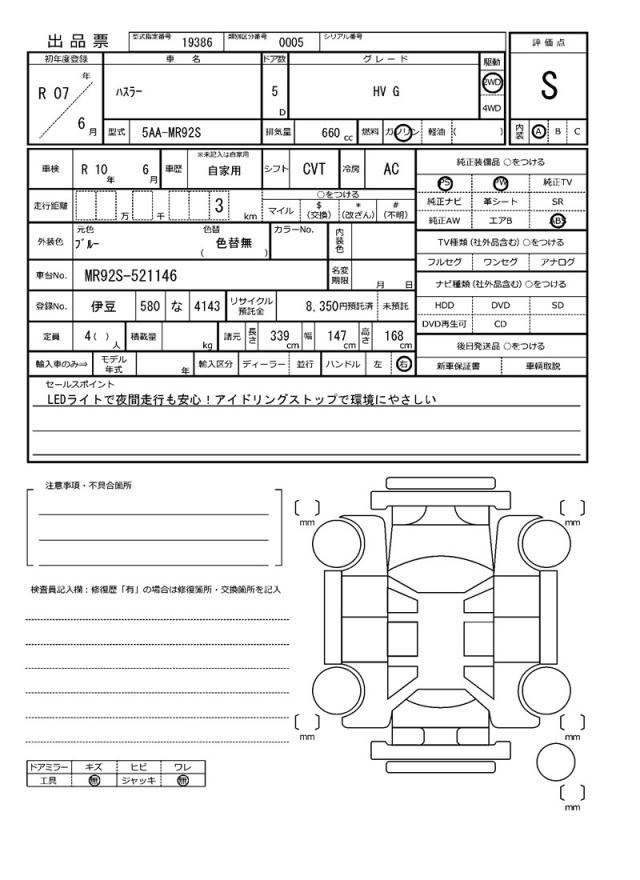 出品票 型式指定番号 19386 類別区分番号 0005 シリアル番号
評価点
初年度登録 車名 ドア数 グレード 駆動
R 07 年 6 月 ﾊｽﾗｰ 5 D HV G 2WD 4WD
S
型式 5AA-MR92S 排気量 660 cc 燃料 ガソリン 軽油 ( )
内装 A B C
車検 R 10 年 6 月 車歴 ※未記入は自家用 自家用 シフト CVT 冷房 AC
純正装備品 ○をつける
PS PW 純正TV
純正ナビ 革シート SR
純正AW エアB ABS
走行距離 万 千 3 km ○をつける
マイル $ (交換) * (改ざん) # (不明)
TV種類 (社外品含む) ○をつける
フルセグ ワンセグ アナログ
外装色 元色 ﾌﾞﾙｰ 色替 ( 色替無 ) カラーNo. 内装色
車台No. MR92S-521146 名変期限 月 日
ナビ種類 (社外品含む) ○をつける
HDD DVD SD
DVD再生可 CD
登録No. 伊豆 580 な 4143 リサイクル預託金 8,350円預託済 未預託
定員 4 ( ) 人 積載量 kg 諸元 長さ 339 cm 幅 147 cm 高さ 168 cm
後日発送品 ○をつける
新車保証書 車輌取説
輸入車のみ⇒ モデル年式 年 輸入区分 ディーラー 並行 ハンドル 左 右
セールスポイント
LEDライトで夜間走行も安心！アイドリングストップで環境にやさしい
注意事項・不具合箇所
検査員記入欄：修復歴「有」の場合は修復箇所・交換箇所を記入
mm
mm
mm
mm
mm
ドアミラー キズ ヒビ ワレ
工具 無 ジャッキ 無